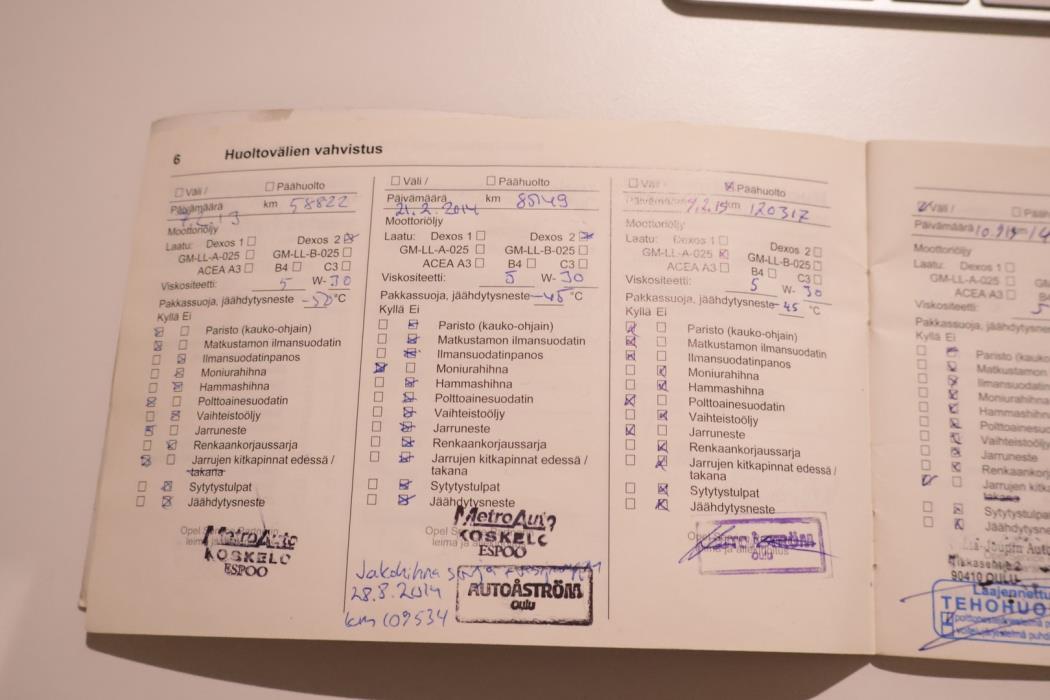 6 Huoltovälien vahvistus
Väli / Päähuolto
Päivämäärä km 58822
Moottoriöljy
Laatu: Dexos 1 Dexos 2
GM-LL-A-025 GM-LL-B-025
ACEA A3 B4 C3
Viskositeetti: 5 W- 30
Pakkassuoja, jäähdytysneste °C
Kyllä Ei
Paristo (kauko-ohjain)
Matkustamon ilmansuodatin
Ilmansuodatinpanos
Moniurahihna
Hammashihna
Polttoainesuodatin
Vaihteistoöljy
Jarruneste
Renkaankorjaussarja
Jarrujen kitkapinnat edessä /
takana
Sytytystulpat
Jäähdytysneste
MetroAuto
KOSKELO
ESPOO
Väli / Päähuolto
Päivämäärä 21.2.2014 km 85149
Moottoriöljy
Laatu: Dexos 1 Dexos 2
GM-LL-A-025 GM-LL-B-025
ACEA A3 B4 C3
Viskositeetti: 5 W- 30
Pakkassuoja, jäähdytysneste -45 °C
Kyllä Ei
Paristo (kauko-ohjain)
Matkustamon ilmansuodatin
Ilmansuodatinpanos
Moniurahihna
Hammashihna
Polttoainesuodatin
Vaihteistoöljy
Jarruneste
Renkaankorjaussarja
Jarrujen kitkapinnat edessä /
takana
Sytytystulpat
Jäähdytysneste
MetroAuto
KOSKELO
ESPOO
Jakohihna sarja
28.8.2014
km 109534
AUTOÅSTRÖM
OULU
Väli / Päähuolto
Päivämäärä 9.2.15 km 120317
Moottoriöljy
Laatu: Dexos 1 Dexos 2
GM-LL-A-025 GM-LL-B-025
ACEA A3 B4 C3
Viskositeetti: 5 W- 30
Pakkassuoja, jäähdytysneste -45 °C
Kyllä Ei
Paristo (kauko-ohjain)
Matkustamon ilmansuodatin
Ilmansuodatinpanos
Moniurahihna
Hammashihna
Polttoainesuodatin
Vaihteistoöljy
Jarruneste
Renkaankorjaussarja
Jarrujen kitkapinnat edessä /
takana
Sytytystulpat
Jäähdytysneste
AUTOÅSTRÖM
OULU
Väli /
Päivämäärä
Moottoriöljy
Laatu: Dexos 1
GM-LL-A-025
ACEA A3
Viskositeetti: 5
Pakkassuoja, jäähdytysneste
Kyllä Ei
Paristo (kauko
Matkustamon
Ilmansuodatin
Moniurahihna
Hammashihna
Polttoainesuo
Vaihteistoöljy
Jarruneste
Renkaankorja
Jarrujen kitka
takana
Sytytystulpat
Jäähdytysne
90410 OULU
Laajennettu
TEHOHUO